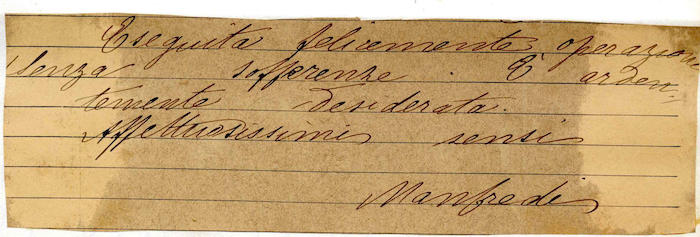 Eseguita felicemente operazione
senza sofferenze. È arden-
temente desiderata.
Affettuosissimi sensi
Manfredi